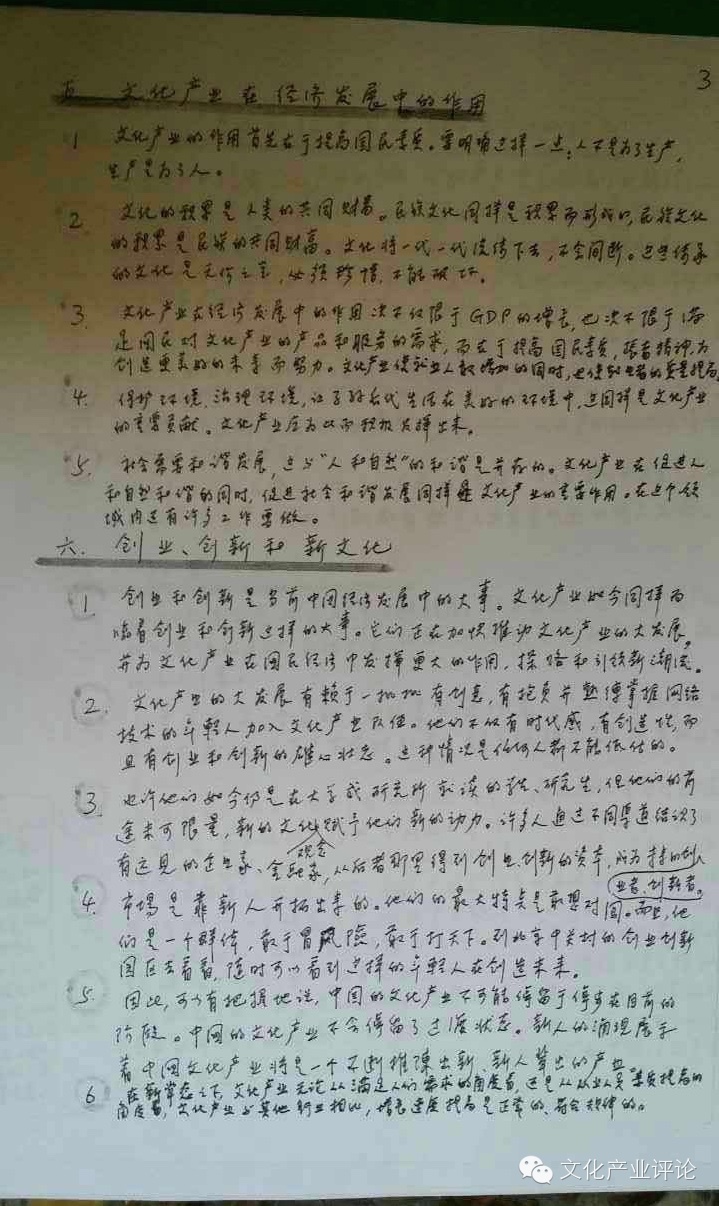 3
五 文化产业在经济发展中的作用
1 文化产业的作用首先在于提高国民素质。要明确这样一点：人不是为了生产，
生产是为了人。
2 文化的积累是人类的共同财富。民族文化同样是积累而形成的，民族文化
的积累是民族的共同财富。文化将一代一代流传下去，不会间断。这些传承
的文化是无价之宝，必须珍惜，不能破坏。
3. 文化产业在经济发展中的作用决不仅限于GDP的增长，也决不限于满
足国民对文化产业的产品和服务的需求，而在于提高国民素质，振奋精神，为
创造更美好的未来而努力。文化产业使就业人数增加的同时，也使就业者的质量提高。
4. 保护环境，治理环境，让子孙后代生活在美好的环境中，这同样是文化产业
的重要贡献。文化产业应为此而积极发挥出来。
5. 社会需要和谐发展，这与“人和自然”的和谐是并存的。文化产业在促进人
和自然和谐的同时，促进社会和谐发展同样是文化产业的重要作用。在这个领
域内还有许多工作要做。
六. 创业、创新和新文化
1. 创业和创新是当前中国经济发展中的大事。文化产业如今同样面
临着创业和创新这样的大事。它们正在加快推动文化产业的大发展，
并为文化产业在国民经济中发挥更大的作用，探路和引领新潮流。
2. 文化产业的大发展有赖于一批批有创意，有抱负并熟练掌握网络
技术的年轻人加入文化产业队伍。他们不仅有时代感，有创造性，而
且有创业和创新的雄心壮志。这种情况是任何人都不能低估的。
3. 也许他们如今仍是在大学或研究所就读的学生、研究生，但他们的前
途未可限量，新的文化观念赋予他们新的动力。许多人通过不同渠道结识了
有远见的企业家、金融家，从后者那里得到创业、创新的资本，成为支持的创
业者、创新者。
4. 市场是靠新人开拓出来的。他们的最大特点是敢想敢闯。而且，他
们是一个群体，敢于冒风险，敢于打天下。到北京中关村的创业创新
园区去看看，随时可以看到这样的年轻人在创造未来。
5. 因此，可以有把握地说，中国的文化产业不可能停留于停步在目前的
阶段。中国的文化产业不会停留于过渡状态。新人的涌现展示
着中国文化产业将是一个不断推陈出新、新人辈出的产业。
6 在新常态之下，文化产业无论从满足人们需求的角度看，还是从从业人员素质提高的
角度看，文化产业与其他行业相比，增长速度提高是正常的、符合规律的。
文化产业评论